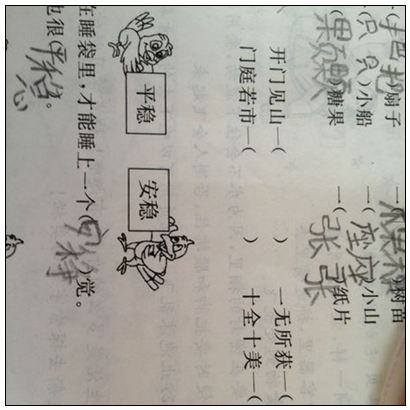 把把)扇子 一(棵棵)树苗
只只)小船 一(座座)小山
颗颗)糖果 一(张张)纸片
开门见山—( ) 一无所获—(
门庭若市—( ) 十全十美—(
平稳 安稳
在睡袋里，才能睡上一个( )觉。
也很 。